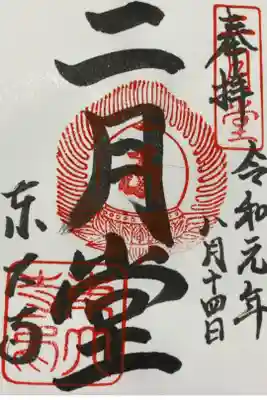 奉拝
令和元年
八月十四日
二月堂
東大寺